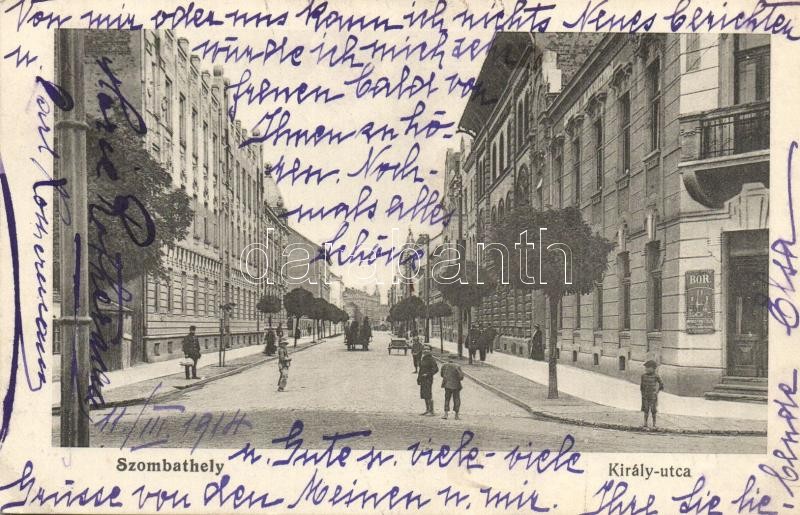 Von mir oder uns kann ich nichts Neues berichten
u. würde ich mich sehr
freuen bald von
Ihnen zu hö-
ren. Noch-
mals alles
Schöne
BOR
darabanth
11/III 1914
Szombathely
Király-utca
u. Gute u. viele-viele
Grüsse von den Meinen u. mir. Ihre Sie lie-
bende Elsa